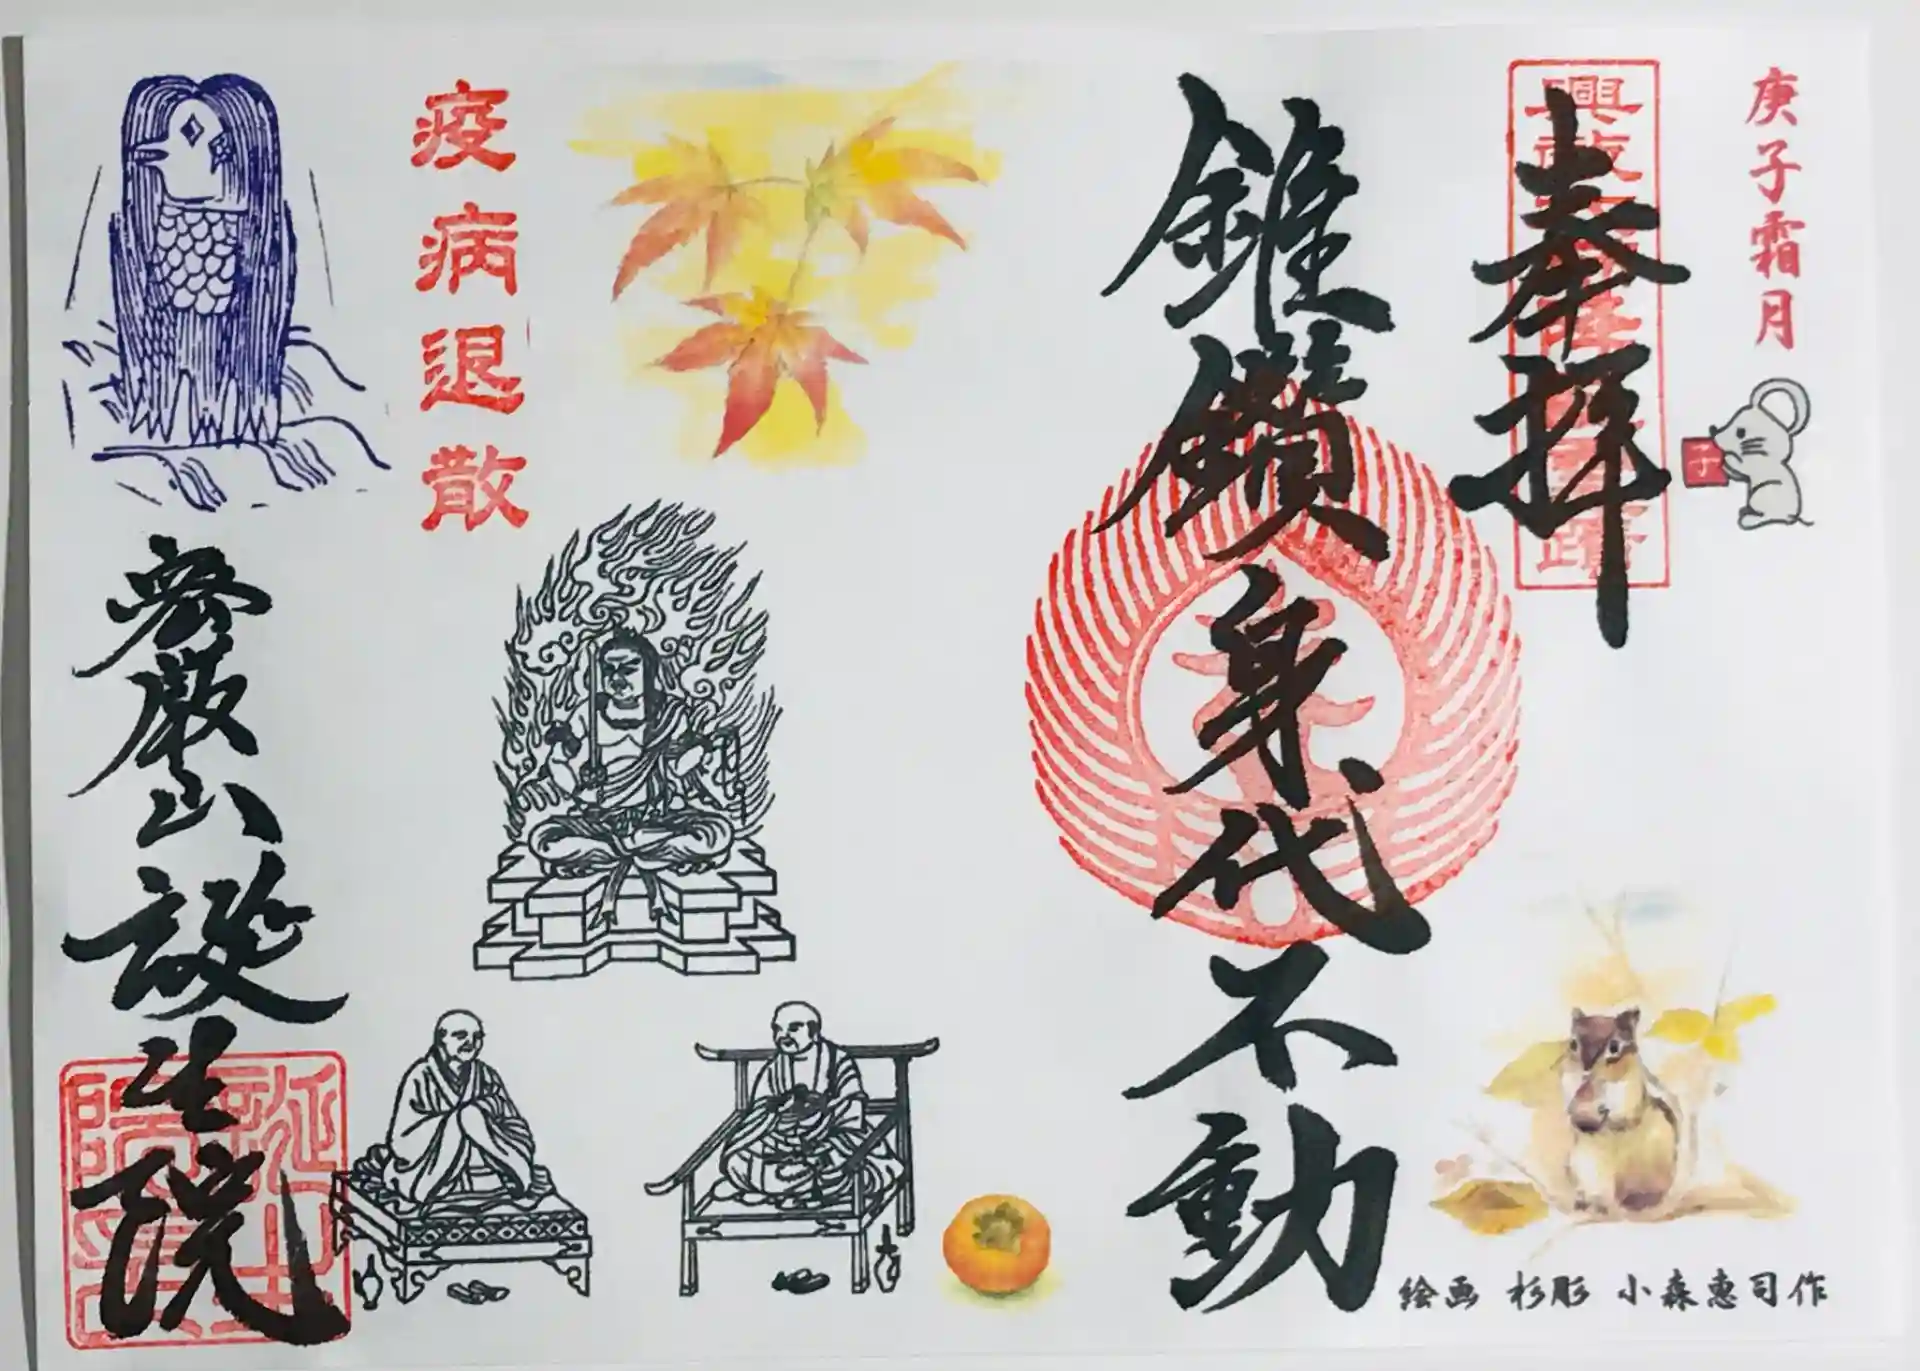 庚子霜月
子
奉拝
錐鑽身代不動
疫病退散
密厳山誕生院
絵画 杉彫 小森惠司作